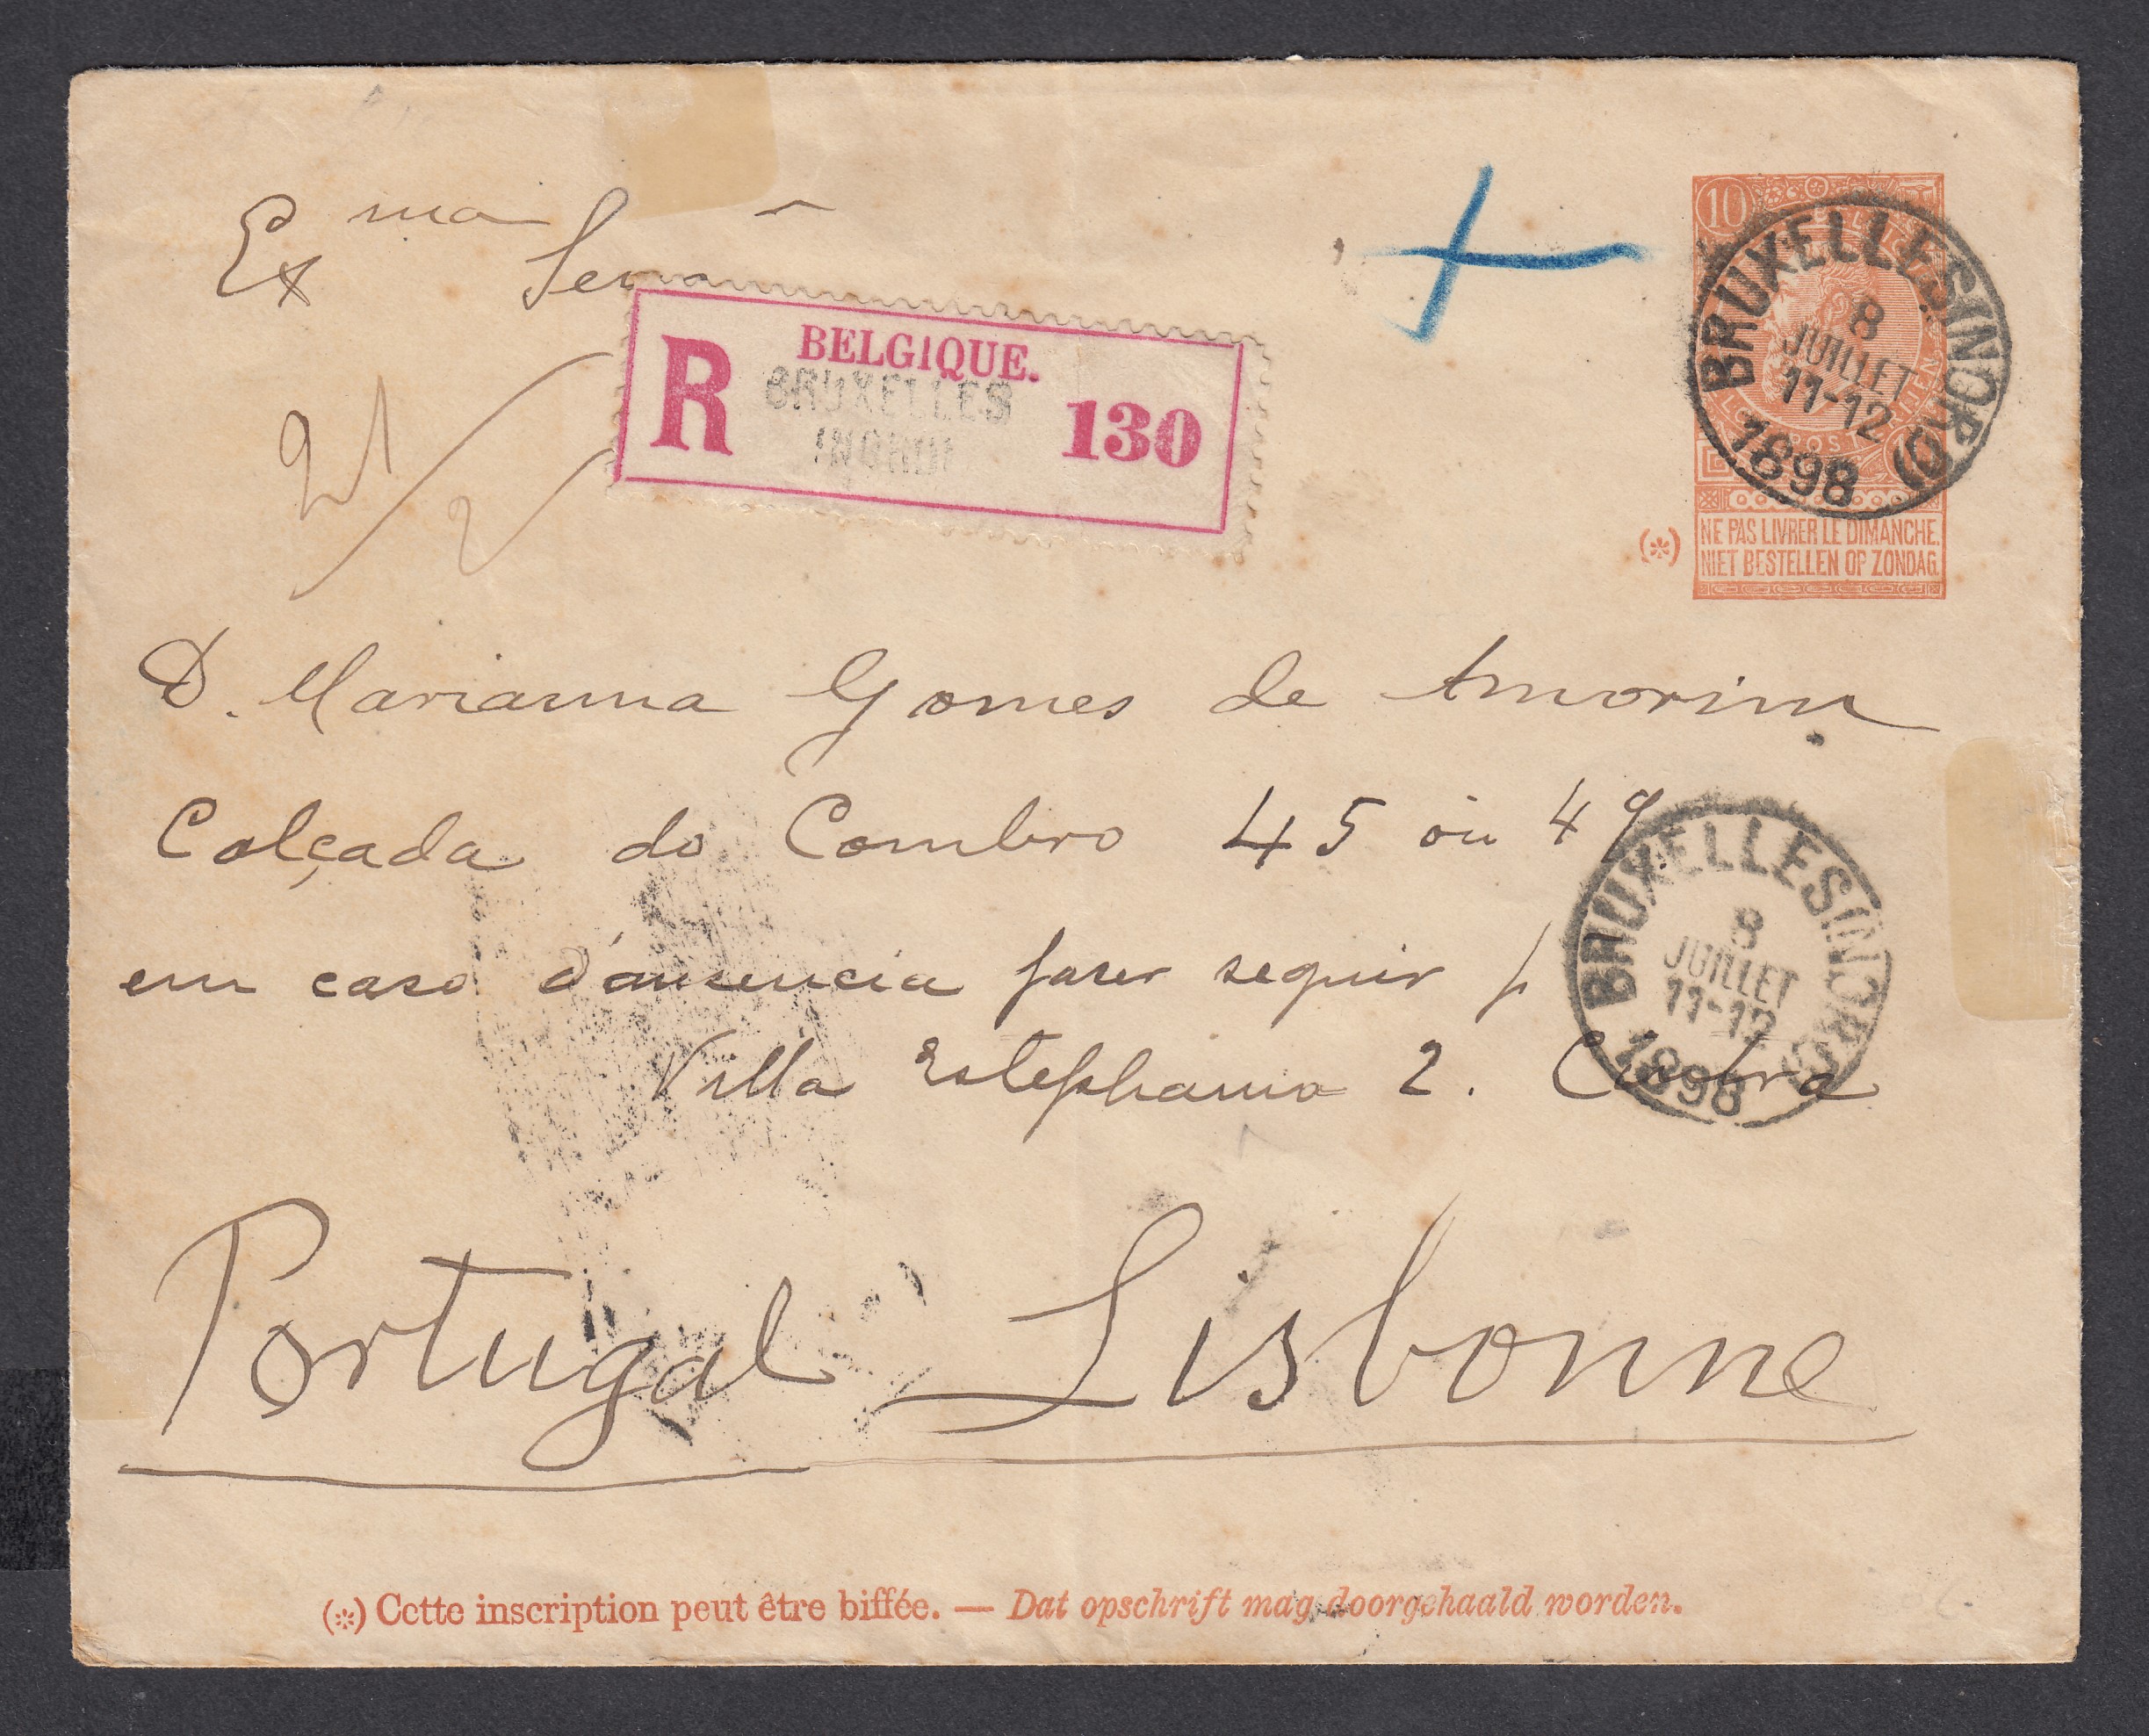 Exma Senra
R BELGIQUE. 130
BRUXELLES
10
BRUXELLES (NORD)
8
JUILLET
11-12
1898
(*) NE PAS LIVRER LE DIMANCHE.
NIET BESTELLEN OP ZONDAG.
21/2
D. Marianna Gomes de Amorim
Calçada do Combro 45 ou 49
em caso d'ausencia faser seguir p
Villa Estephania 2. Cintra
BRUXELLES (NORD)
8
JUILLET
11-12
1898
Portugal Lisbonne
(*) Cette inscription peut être biffée. — Dat opschrift mag doorgehaald worden.